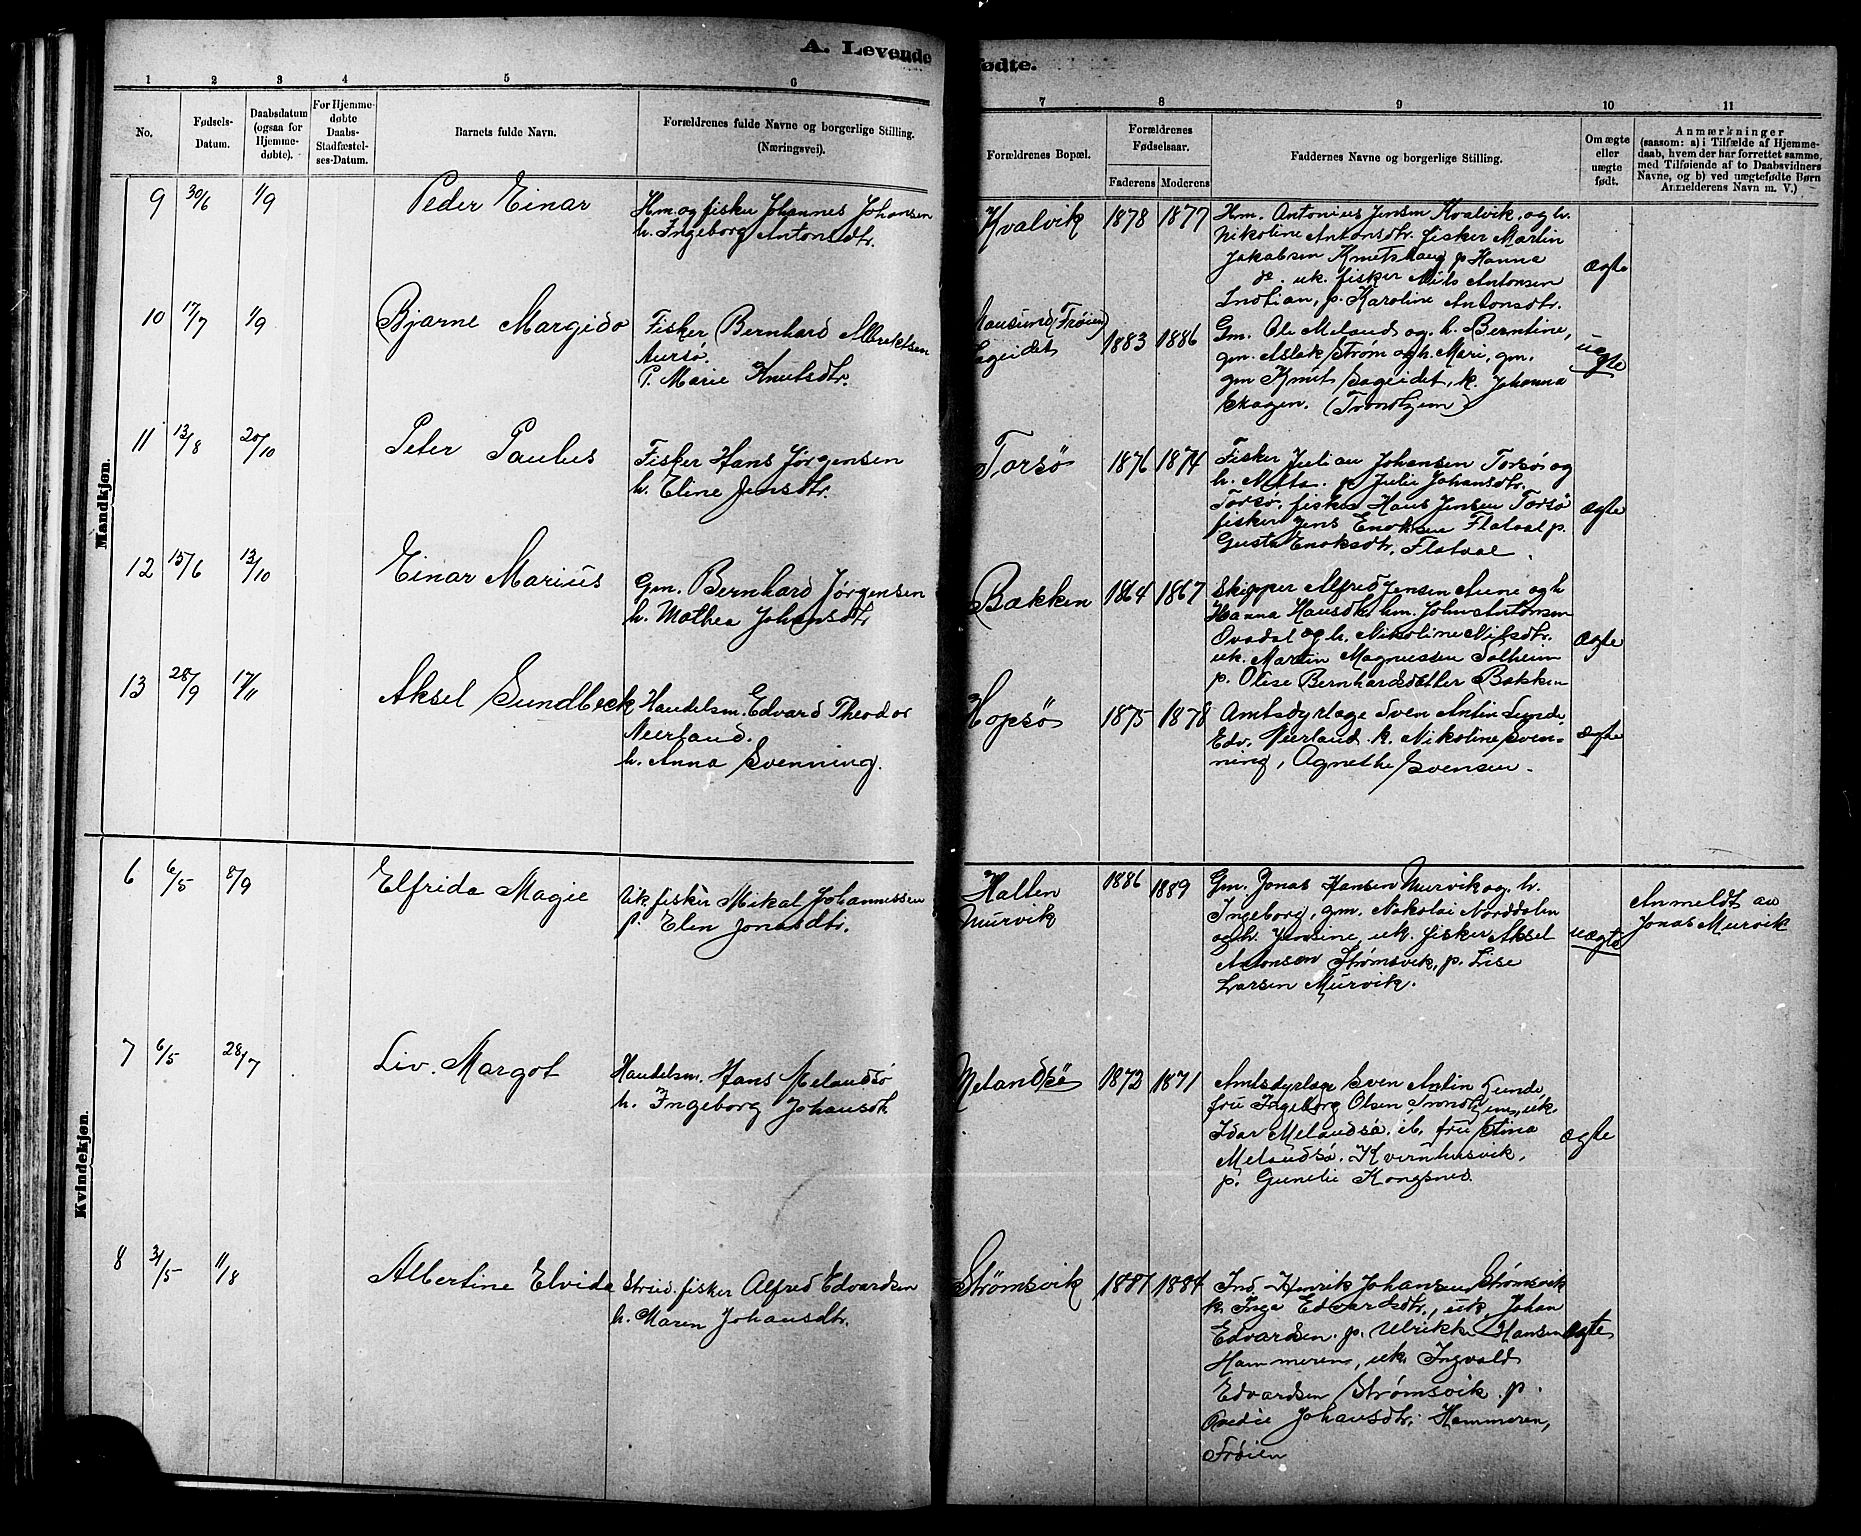 A. Levende
fødte.
1 2 3 4 5 6 7 8 9 10 11
No.
Fødsels-
Datum.
Daabsdatum
(ogsaa for
Hjemme-
døbte).
For Hjemme-
døbte
Daabs-
Stadfæstel-
ses-Datum.
Barnets fulde Navn.
Forældrenes fulde Navne og borgerlige Stilling.
(Næringsvei).
Forældrenes Bopæl.
Forældrenes
Fødselsaar.
Faderens Moderens
Faddernes Navne og borgerlige Stilling.
Om ægte
eller
uægte
født.
Anmærkninger
(saasom: a) i Tilfælde af Hjemme-
daab, hvem der har forrettet samme,
med Tilføiende af to Daabsvidners
Navne, og b) ved uægtefødte Børn
Anmelderens Navn m. V.)
Mandkjøn.
9 30/6 1/9 Peder Einar
Hm. og fisker Johannes Johansen
h. Ingeborg Antonsdtr.
Kvalvik 1878 1877
Hm. Antonius Jensen Kvalvik og h.
Nikoline Antonsdtr. fisker Martin
Jakobsen Knutshaug p Hanna
do. uk. fisker Nils Antonsen
p. Karoline Antonsdtr.
ægte
10 17/7 1/9 Bjarne Margido
Fisker Bernhard Albrektsen
Aursø.
P. Marie Knutsdtr.
Mausund (Frøien)
Sageidet 1883 1886
Gm. Ole Meland og h. Berntine,
gm. Aslak Strøm og h. Mari, gm.
gm Knut Sageidet, k. Johanna
Skagen. (Trondhjem)
uægte
11 13/8 20/10 Peter Paulus
Fisker Hans Jørgensen
h. Eline Jensdtr.
Torsø 1876 1874
Fisker Julian Johansen Torsø og
h. Meta. p Julie Johansdtr.
Torsø, fisker Hans Jensen Torsø
fisker Jens Enoksen Flatval p.
Gusta Enoksdtr. Flatval.
ægte
12 15/6 13/10 Einar Marius
Gm. Bernhard Jørgensen
h. Mathea Johansdtr
Bakken 1864 1867
Skipper Alfred Jensen Aune og h
Hanna Hansdtr. hm. John Antonsen
og h. Nikoline Nilsdtr.
uk. Martin Magnussen Solheim
p. Olise Bernhardsdatter Bakken
ægte
13 28/9 17/11 Aksel Sundbeck
Handelsm. Edvard Theodor
Neerland.
h. Anna Svenning.
Hopsø 1875 1878
Amtsdyrlæge Sven Antin Lunde,
Edv. Neerland. k. Nikoline Sven-
ning, Agnethe Svensen.
ægte
Kvindekjøn.
6 6/5 8/9 Elfrida Magie
Uk. fisker Mikal Johannessen
p. Elen Jonasdtr.
Halten
Murvik 1886 1889
Gm. Jonas Hansen Murvik og h.
Ingeborg, gm. Nikolai Norddalen
og h. Jensine, uk. fisker Aksel
Antonsen Strømsvik, p. Lise
Larsen Murvik.
uægte
Anmeldt av
Jonas Murvik
7 6/5 28/7 Liv Margot
Handelsm. Hans Melandsø
h. Ingeborg Johansdtr
Melandsø 1872 1871
Amtsdyrlæge Sven Antin Lunde,
fru Ingeborg Olsen Trondhjem, uk.
Idar Melandsø. ib. fru Stina
Melandsø. Kvernhusvik,
p. Gunelie Kongsnes
ægte
8 31/5 11/8 Albertine Elvida
Strsid. fisker Alfred Edvardsen
h. Maren Johansdtr.
Strømsvik 1881 1884
Ind. Henrik Johansen Strømsvik
k. Inga Edvardsdtr., uk. Johan
Edvardsen. p. Ulrikke Hansen
Hammeren, uk. Ingvald
Edvardsen Strømsvik. p.
Johansdtr. Hammeren,
Frøien
ægte